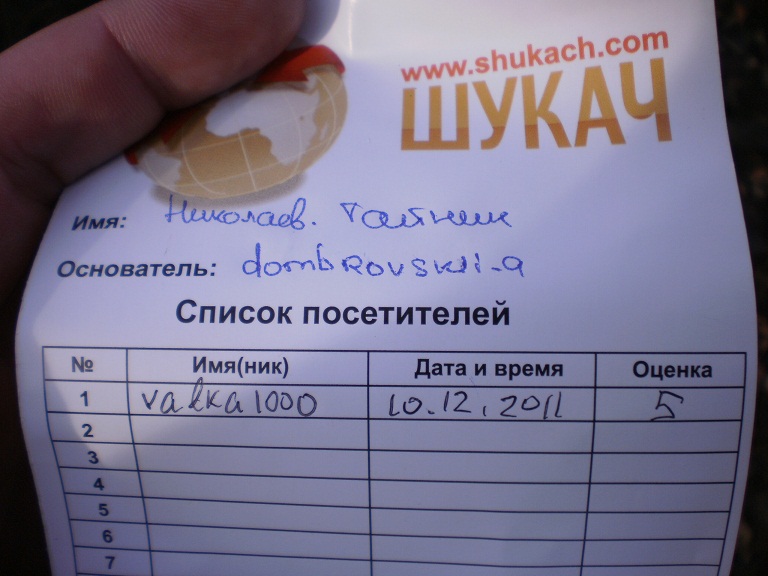 www.shukach.com
ШУКАЧ
Имя: Николаев. Тайник
Основатель: dombrovskii-a
Список посетителей
№ Имя(ник) Дата и время Оценка
1 valka1000 10.12.2011 5
2
3
4
5
6
7